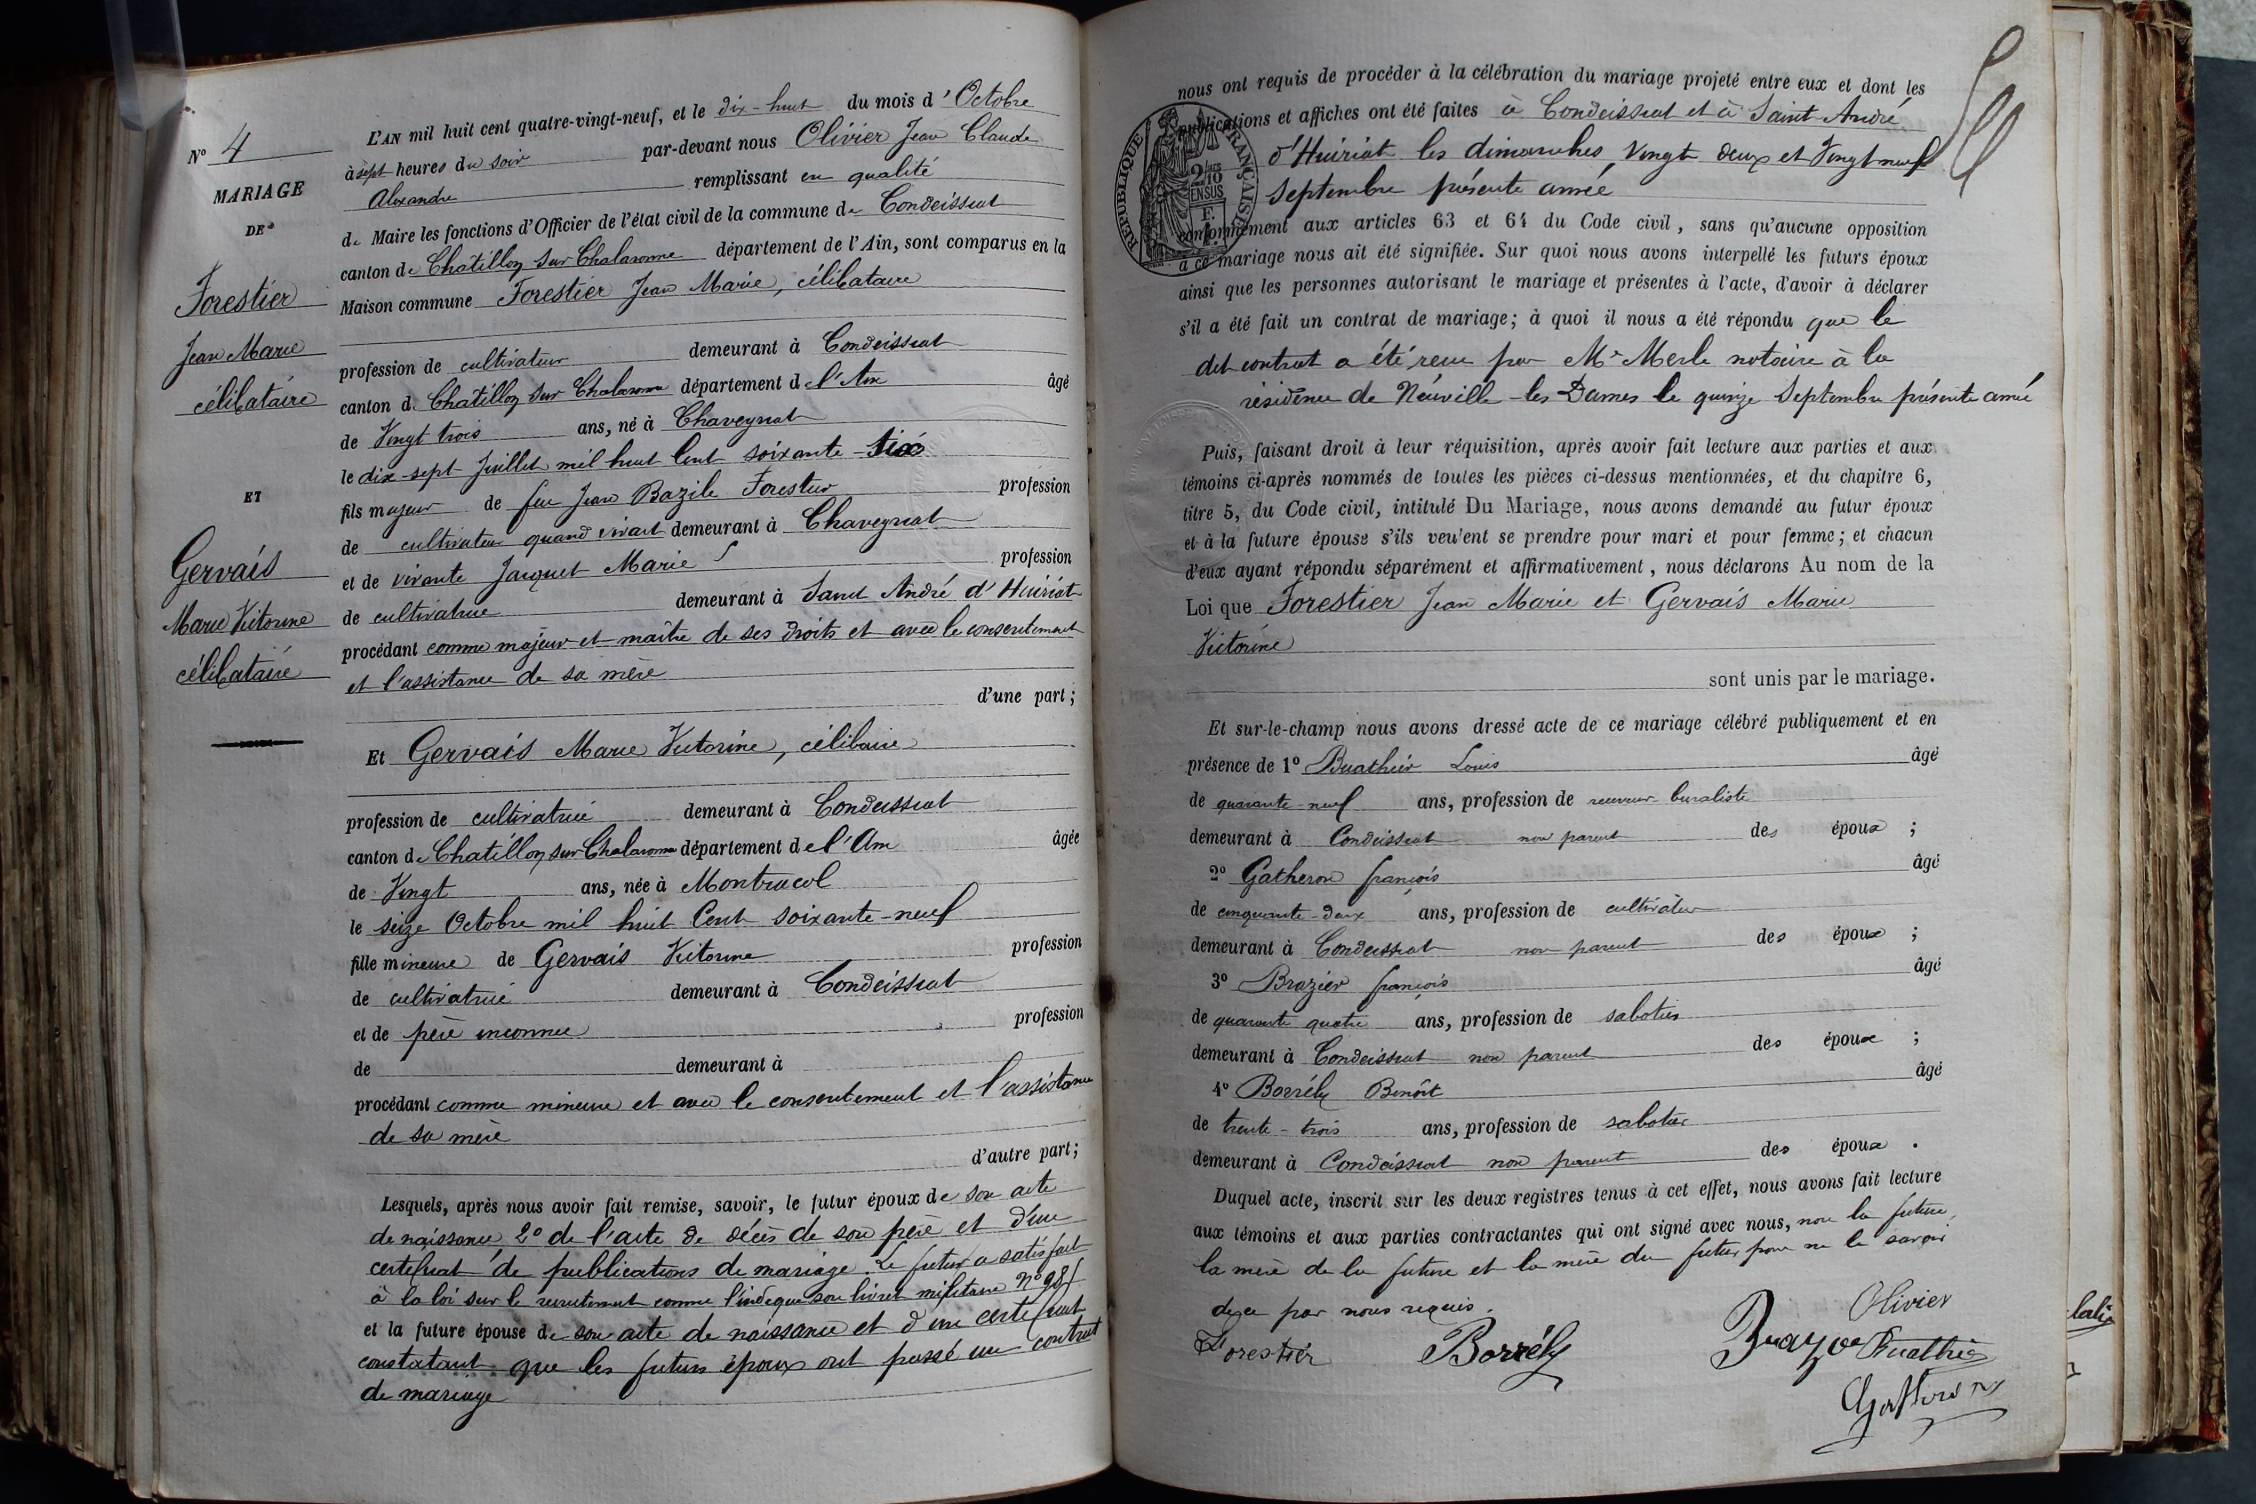 N° 4
MARIAGE
DE
Forestier
Jean Marie
célibataire
ET
Gervais
Marie Victorine
célibataire
L'AN mil huit cent quatre-vingt-neuf, et le dix-huit du mois d'Octobre
à sept heures du soir par-devant nous Olivier Jean Claude
Alexandre remplissant en qualité
de Maire les fonctions d'Officier de l'état civil de la commune de Condeissiat
canton de Chatillon sur Chalaronne département de l'Ain, sont comparus en la
Maison commune Forestier Jean Marie, célibataire
profession de cultivateur demeurant à Condeissiat
canton de Chatillon sur Chalaronne département de l'Ain âgé
de Vingt trois ans, né à Chaveyriat
le dix-sept Juillet mil huit Cent soixante-six
fils majeur de feu Jean Bazile Forestier profession
de cultivateur quand vivait demeurant à Chaveyriat
et de vivante Jacquet Marie profession
de cultivatrice demeurant à Saint André d'Huiriat
procédant comme majeur et maître de ses droits et avec le consentement
et l'assistance de sa mère
d'une part ;
Et Gervais Marie Victorine, célibaire
profession de cultivatrice demeurant à Condeissiat
canton de Chatillon sur Chalaronne département de l'Ain âgée
de Vingt ans, née à Montracol
le seize Octobre mil huit Cent soixante-neuf
fille mineure de Gervais Victorine profession
de cultivatrice demeurant à Condeissiat
et de père inconnu profession
de demeurant à
procédant comme mineure et avec le consentement et l'assistance
de sa mère
d'autre part ;
Lesquels, après nous avoir fait remise, savoir, le futur époux de son acte
de naissance 2° de l'acte de décès de son père et d'un
certificat de publications de mariage. Le futur a satisfait
à la loi sur le recrutement comme l'indique son livret militaire n°
et la future épouse de son acte de naissance et d'un certificat
constatant que les futurs époux ont passé un contrat
de mariage
nous ont requis de procéder à la célébration du mariage projeté entre eux et dont les
publications et affiches ont été faites à Condeissiat et à Saint André
d'Huiriat les dimanches Vingt deux et Vingt neuf
Septembre présente année
conformément aux articles 63 et 64 du Code civil, sans qu'aucune opposition
à ce mariage nous ait été signifiée. Sur quoi nous avons interpellé les futurs époux
ainsi que les personnes autorisant le mariage et présentes à l'acte, d'avoir à déclarer
s'il a été fait un contrat de mariage ; à quoi il nous a été répondu que le
dit contrat a été reçu par Mr Merle notaire à la
résidence de Neuville-les-Dames le quinze Septembre présente année
RÉPUBLIQUE FRANÇAISE
2/10 EN SUS
Puis, faisant droit à leur réquisition, après avoir fait lecture aux parties et aux
témoins ci-après nommés de toutes les pièces ci-dessus mentionnées, et du chapitre 6,
titre 5, du Code civil, intitulé Du Mariage, nous avons demandé au futur époux
et à la future épouse s'ils veu'ent se prendre pour mari et pour femme ; et chacun
d'eux ayant répondu séparément et affirmativement, nous déclarons Au nom de la
Loi que Forestier Jean Marie et Gervais Marie
Victorine
sont unis par le mariage.
Et sur-le-champ nous avons dressé acte de ce mariage célébré publiquement et en
présence de 1° Buathier Louis âgé
de quarante-neuf ans, profession de receveur buraliste
demeurant à Condeissiat non parent des époux ;
2° Gatheron françois âgé
de cinquante-deux ans, profession de cultivateur
demeurant à Condeissiat non parent des époux ;
3° Brazier françois âgé
de quarante quatre ans, profession de sabotier
demeurant à Condeissiat non parent des époux ;
4° Borrély Benoît âgé
de trente-trois ans, profession de sabotier
demeurant à Condeissiat non parent des époux.
Duquel acte, inscrit sur les deux registres tenus à cet effet, nous avons fait lecture
aux témoins et aux parties contractantes qui ont signé avec nous, non la future,
la mère de la future et la mère du futur pour ne le savoir
de ce par nous requis.
Olivier
Forestier Borrély Buathier
Gatheron